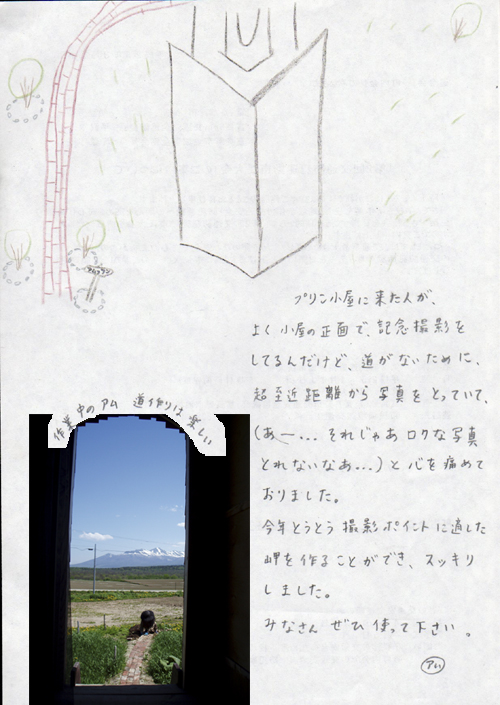 プリン小屋に来た人が、
よく小屋の正面で、記念撮影を
してるんだけど、道がないために、
超至近距離から写真をとっていて、
(あー...それじゃあロクな写真
とれないなあ...)と心を痛めて
おりました。
今年とうとう撮影ポイントに適した
岬を作ることができ、スッキリ
しました。
みなさん ぜひ使って下さい。
アム
作業中のアム 道作りは楽しい